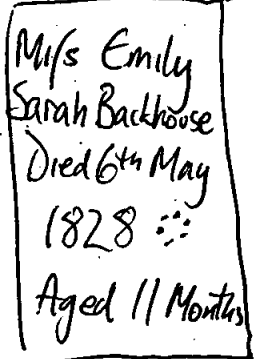 Mifs Emily
Sarah Backhouse
Died 6th May
1828
Aged 11 Months